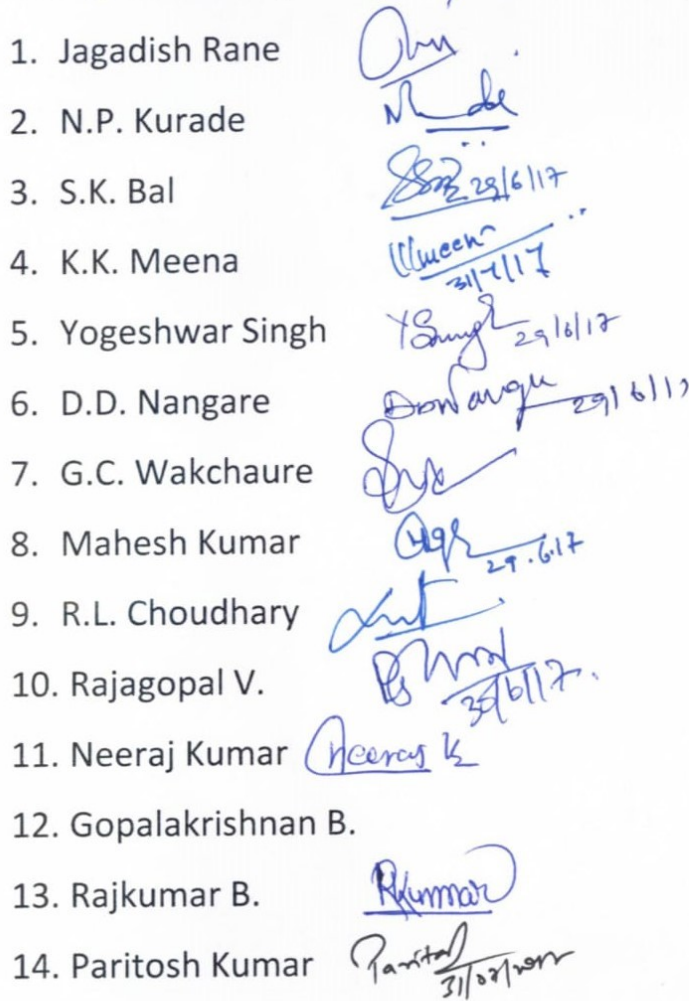 1. Jagadish Rane
2. N.P. Kurade
3. S.K. Bal 29/6/17
4. K.K. Meena 31/7/17
5. Yogeshwar Singh YSingh 29/6/17
6. D.D. Nangare DDNangare 29/6/17
7. G.C. Wakchaure
8. Mahesh Kumar 29.6.17
9. R.L. Choudhary
10. Rajagopal V. 30/6/17.
11. Neeraj Kumar Neeraj K
12. Gopalakrishnan B.
13. Rajkumar B. RKummar
14. Paritosh Kumar